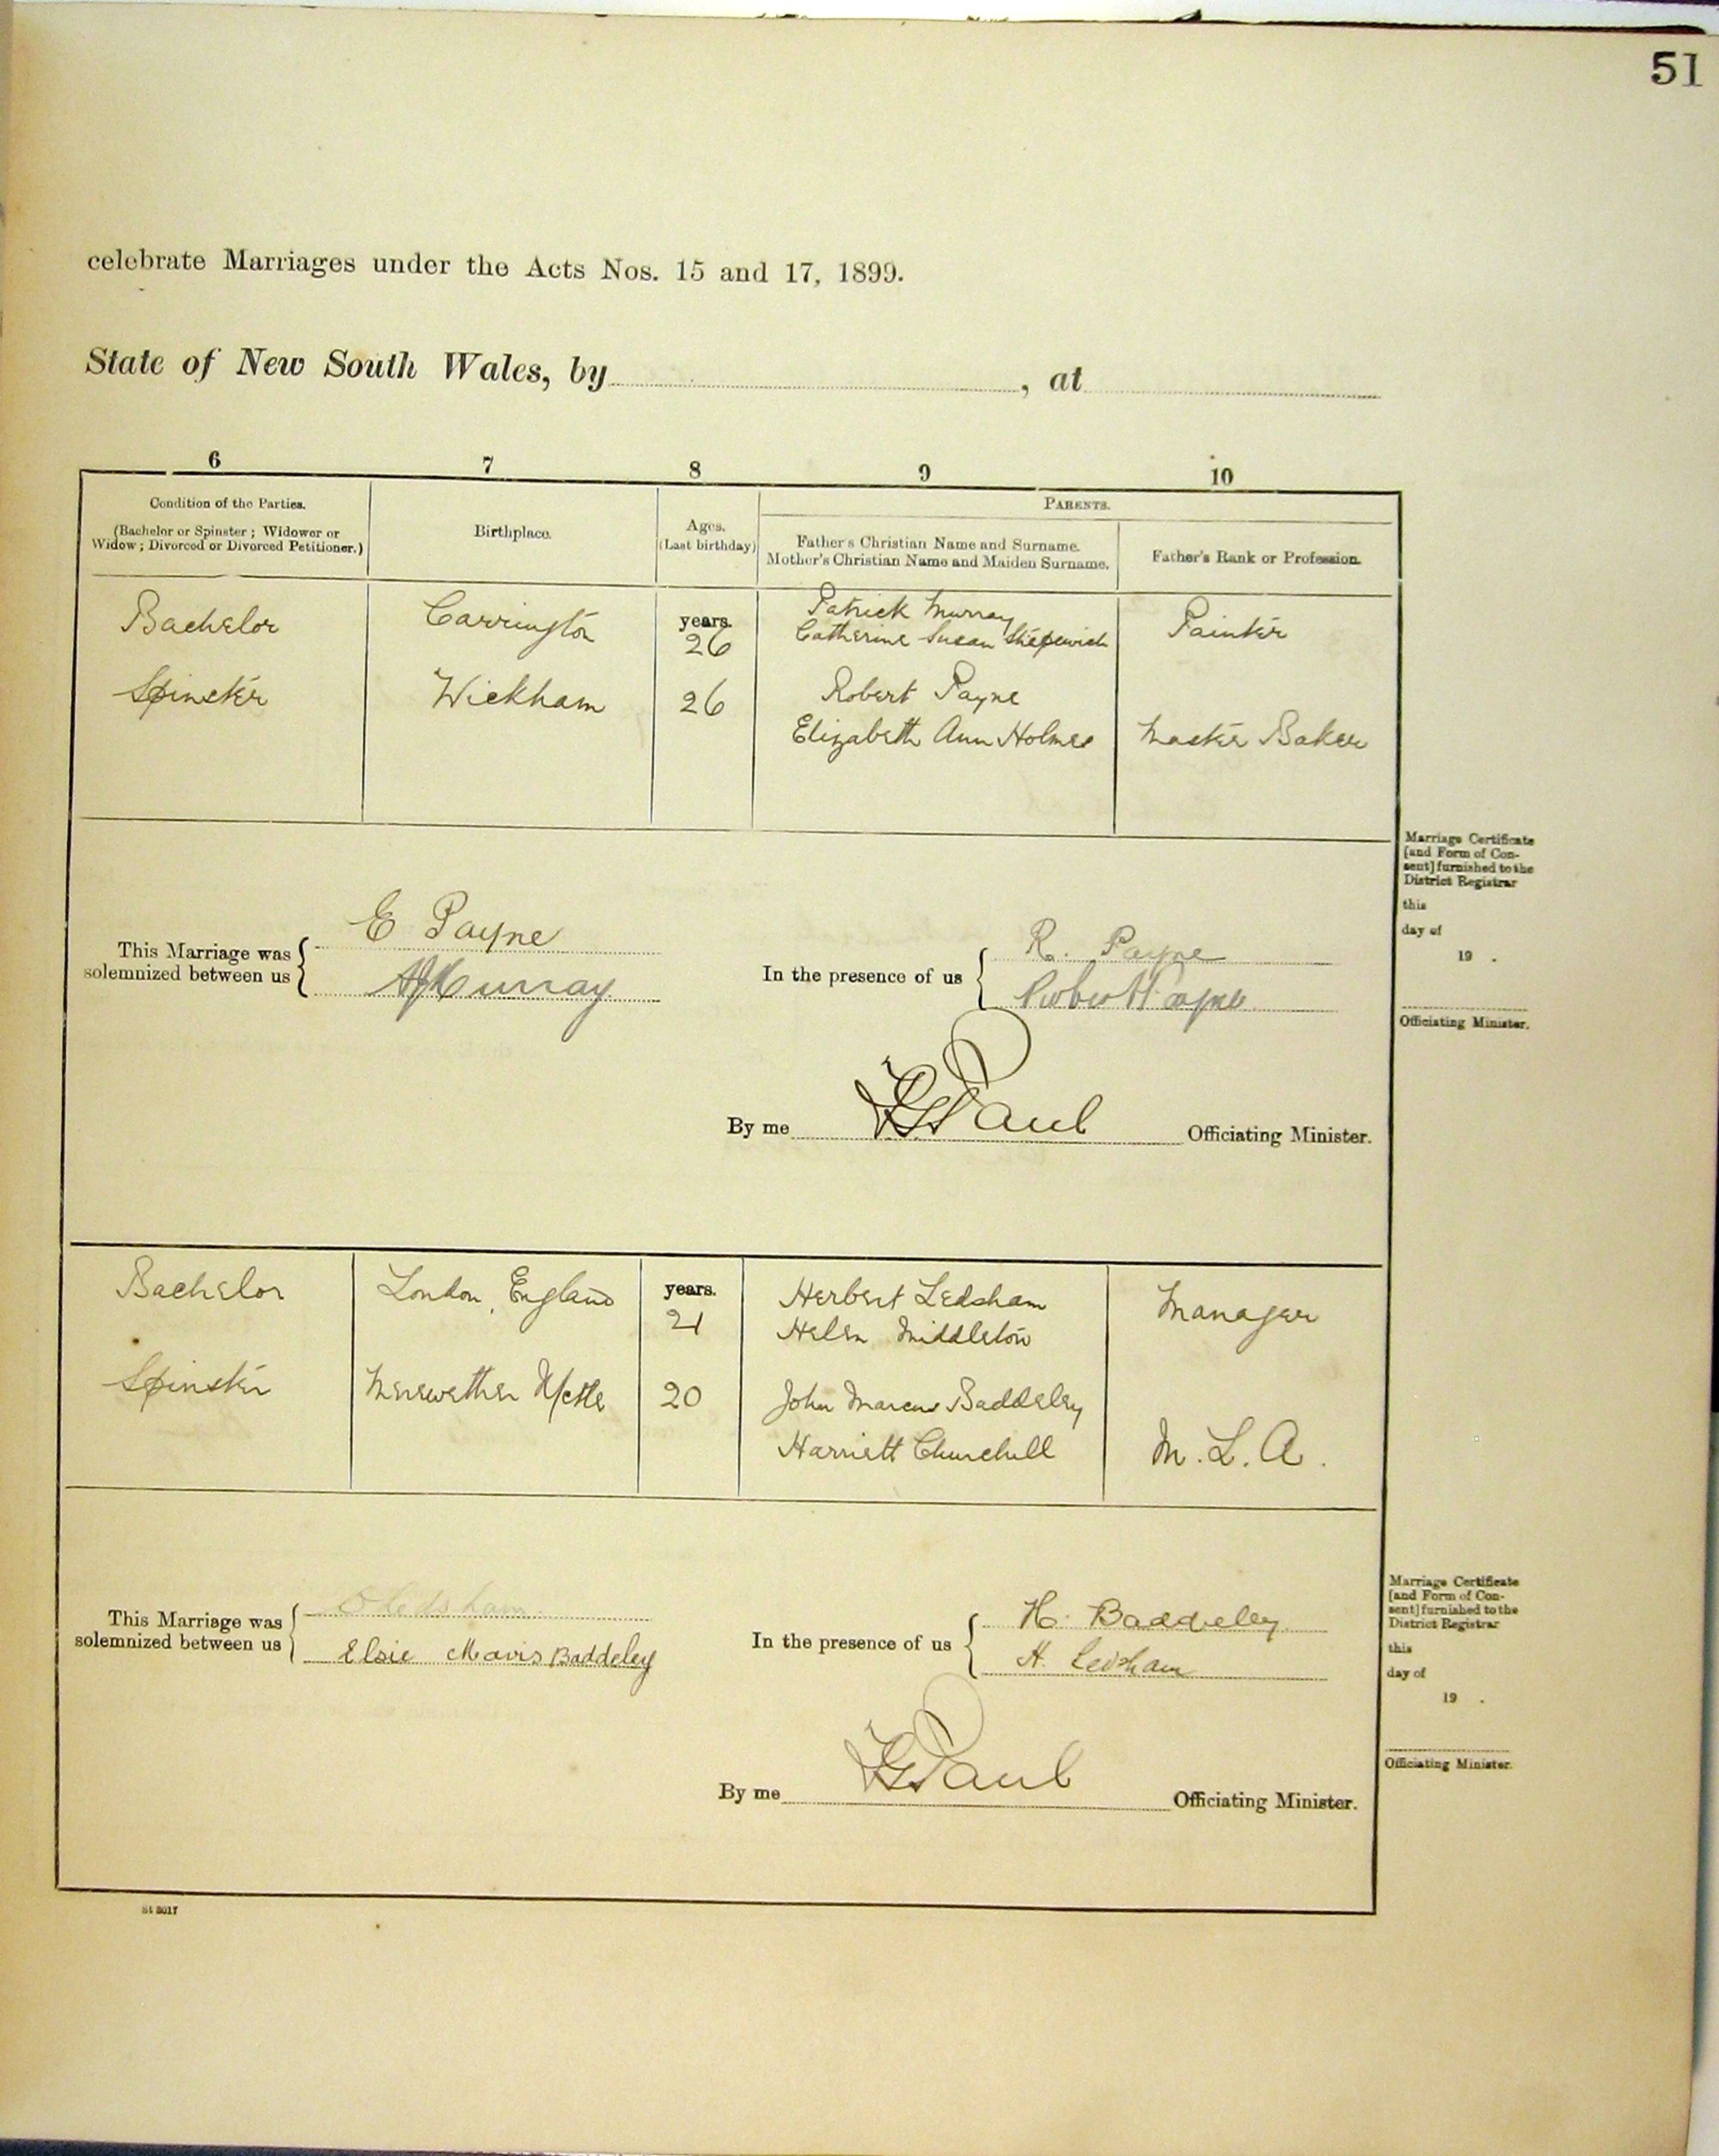 51
celebrate Marriages under the Acts Nos. 15 and 17, 1899.
State of New South Wales, by , at
6 7 8 9 10
Condition of the Parties.
(Bachelor or Spinster ; Widower or
Widow ; Divorced or Divorced Petitioner.)
Birthplace.
Ages.
(Last birthday)
PARENTS.
Father's Christian Name and Surname.
Mother's Christian Name and Maiden Surname.
Father's Rank or Profession.
Bachelor Carrington years. 26 Patrick Murray Painter
Catherine Susan
Spinster Wickham 26 Robert Payne
Elizabeth Ann Holmes Master Baker
Marriage Certificate
[and Form of Con-
sent] furnished to the
District Registrar
this
day of
19 .
Officiating Minister.
This Marriage was
solemnized between us
E Payne
Murray
In the presence of us
R. Payne
Robert Payne
By me Paul Officiating Minister.
Bachelor London, England years. 21 Herbert Ledsham Manager
Helen Middleton
Spinster Merewether N/ctle 20 John Marcus Baddeley
Harriett Churchill M.L.A.
Marriage Certificate
[and Form of Con-
sent] furnished to the
District Registrar
this
day of
19 .
Officiating Minister.
This Marriage was
solemnized between us
Ledsham
Elsie Mavis Baddeley
In the presence of us
H. Baddeley
H. Ledsham
By me Paul Officiating Minister.
St 8017